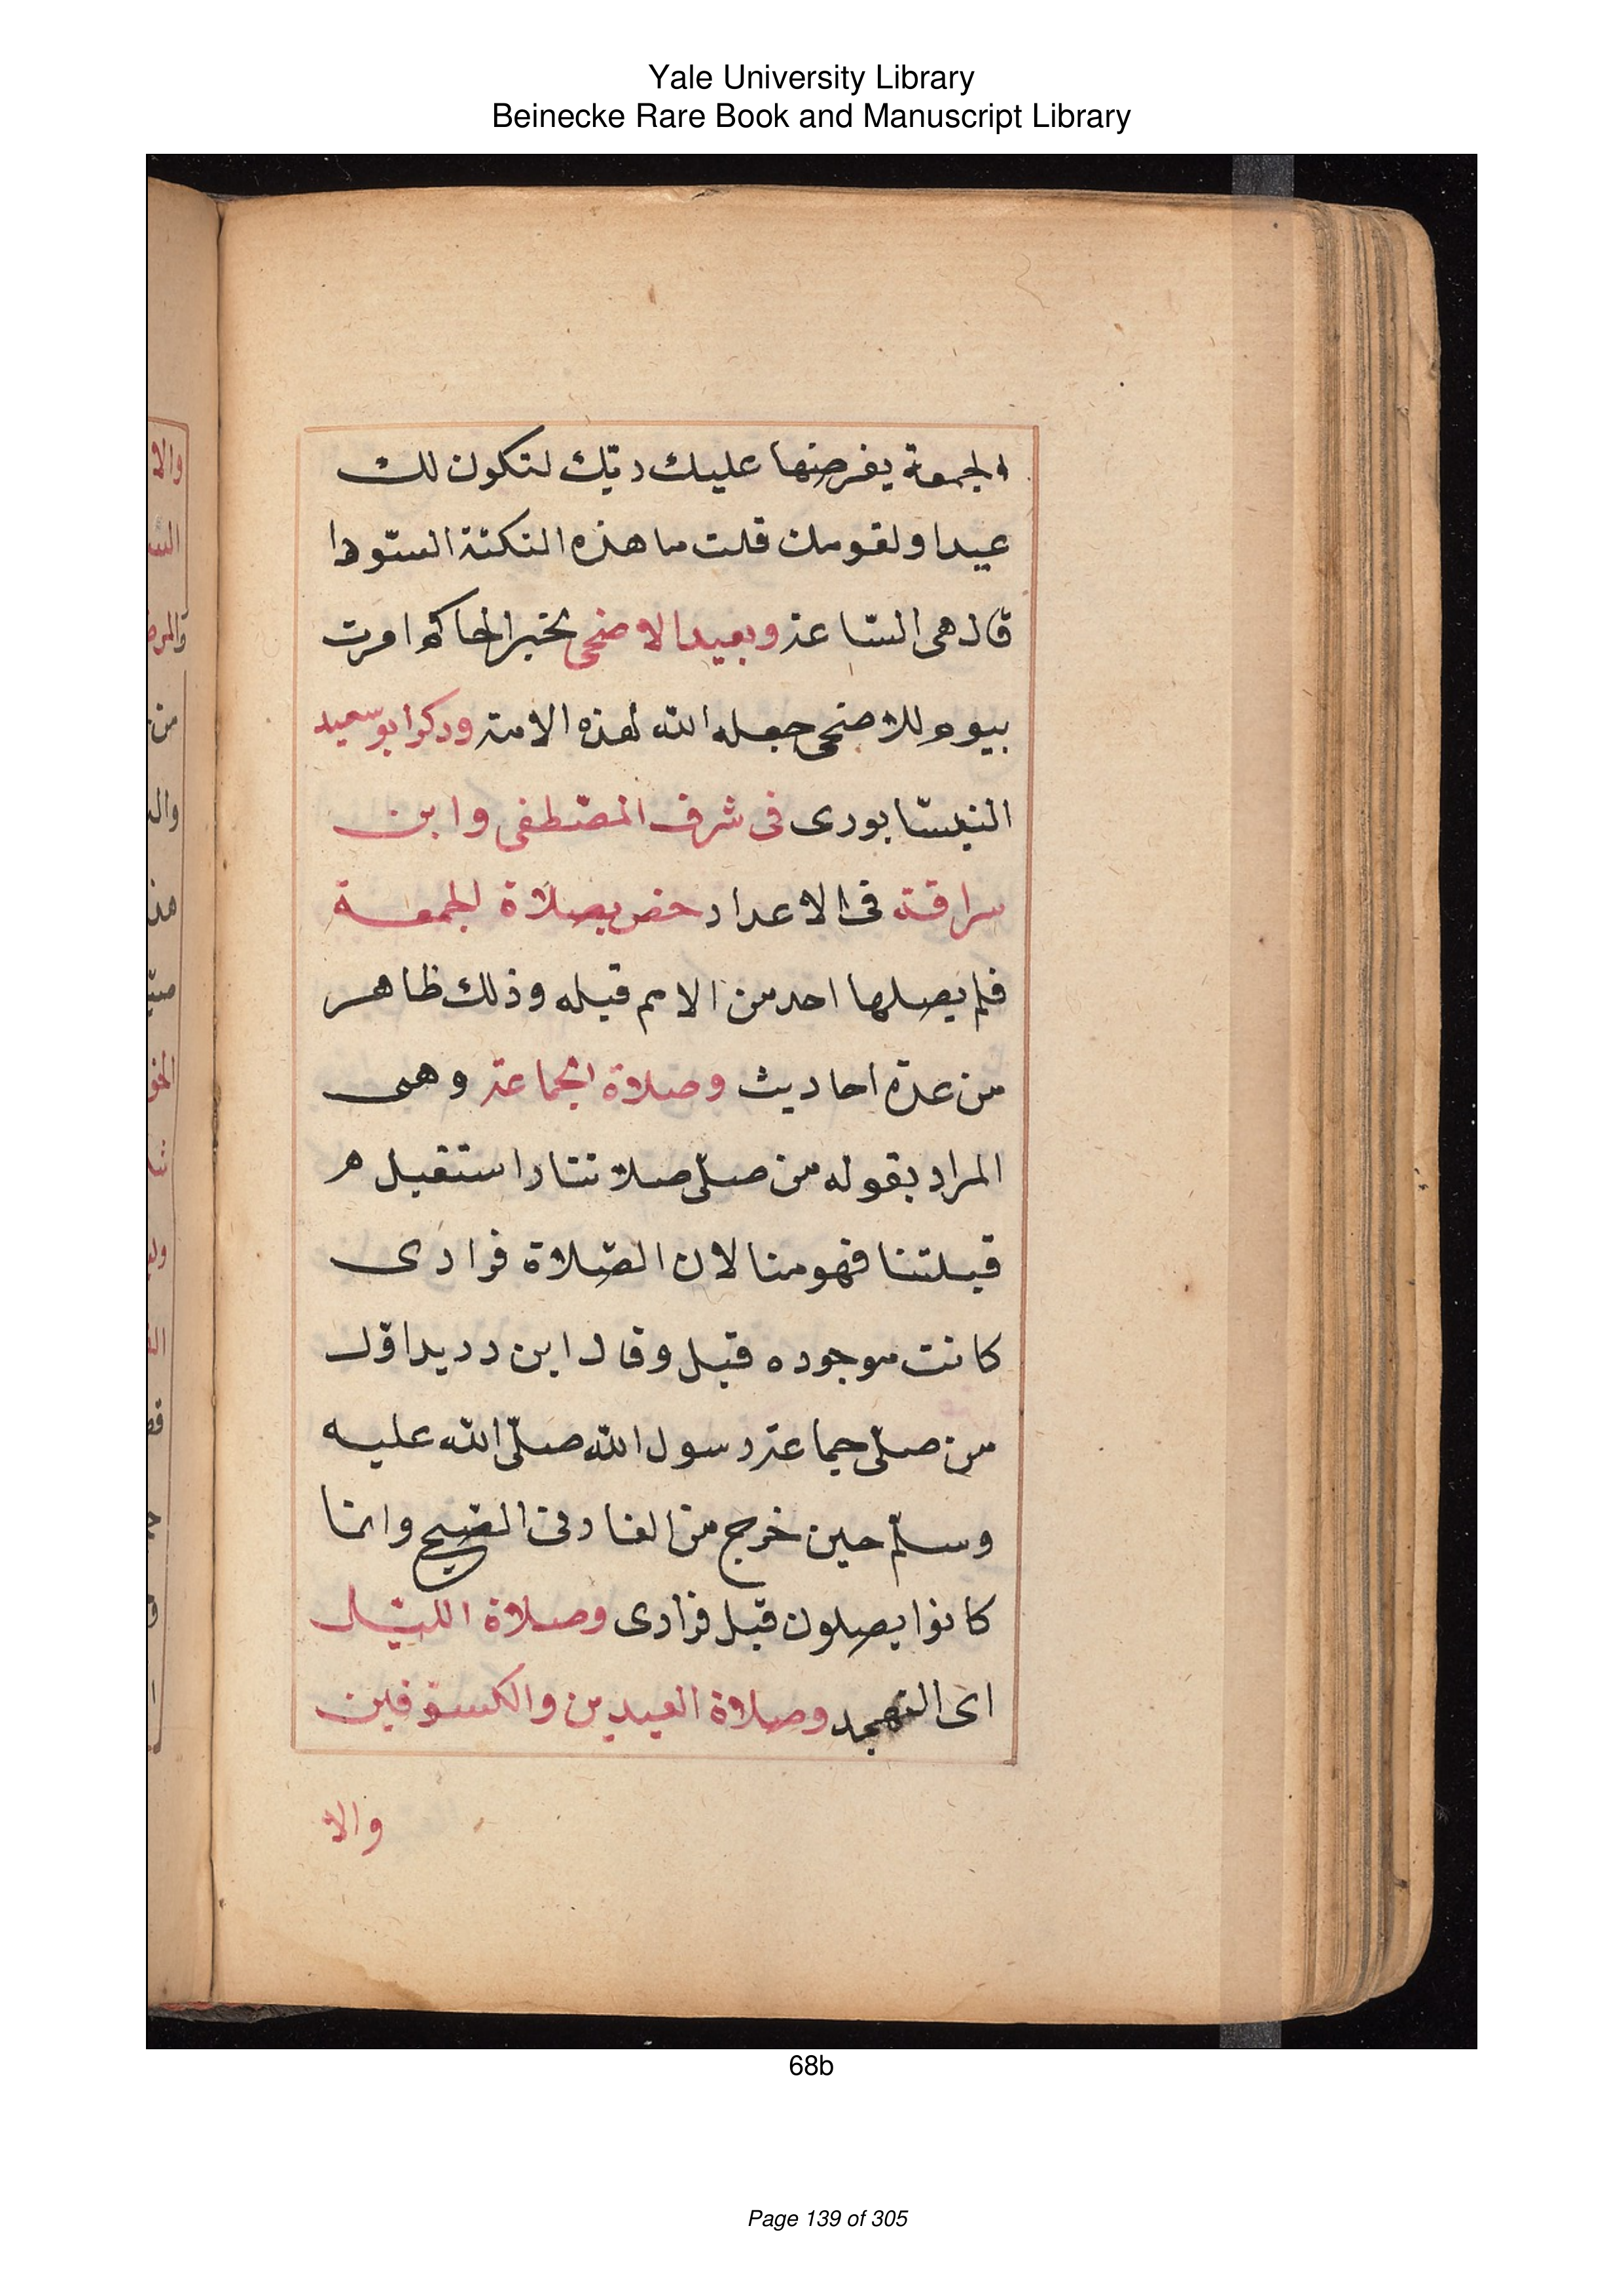 Yale University Library
Beinecke Rare Book and Manuscript Library
الجمعة يفرضها عليك ربّك لتكون لك
عيدا ولقومك قلت ما هذه النكتة السّودا
قال هى السّاعة وبعيد الاضحى بخبر الحاكم امرت
بيوم للاضحى جعله الله لهذه الامة وذكر ابو سعيد
النيسّابورى فى شرف المصّطفى وابن
سراقة فى الاعداد خص بصلاة الجمعة
فلم يصلها احد من الامم قبله وذلك ظاهر
من عدة احاديث وصلاة الجماعة وهى
المراد بقوله من صلّى صلاتنا واستقبل هر
قبلتنا فهو منا لان الصّلاة فرادى
كانت موجوده قبل وقال ابن دريد اوّل
من صلّى جماعة رسول الله صلّى الله عليه
وسلّم حين خرج من الغار فى الصّبح وانما
كانوا يصلون قبل فرادى وصلاة الليّل
اى التهجد وصلاة العيدين والكسوفين
والا
68b
Page 139 of 305